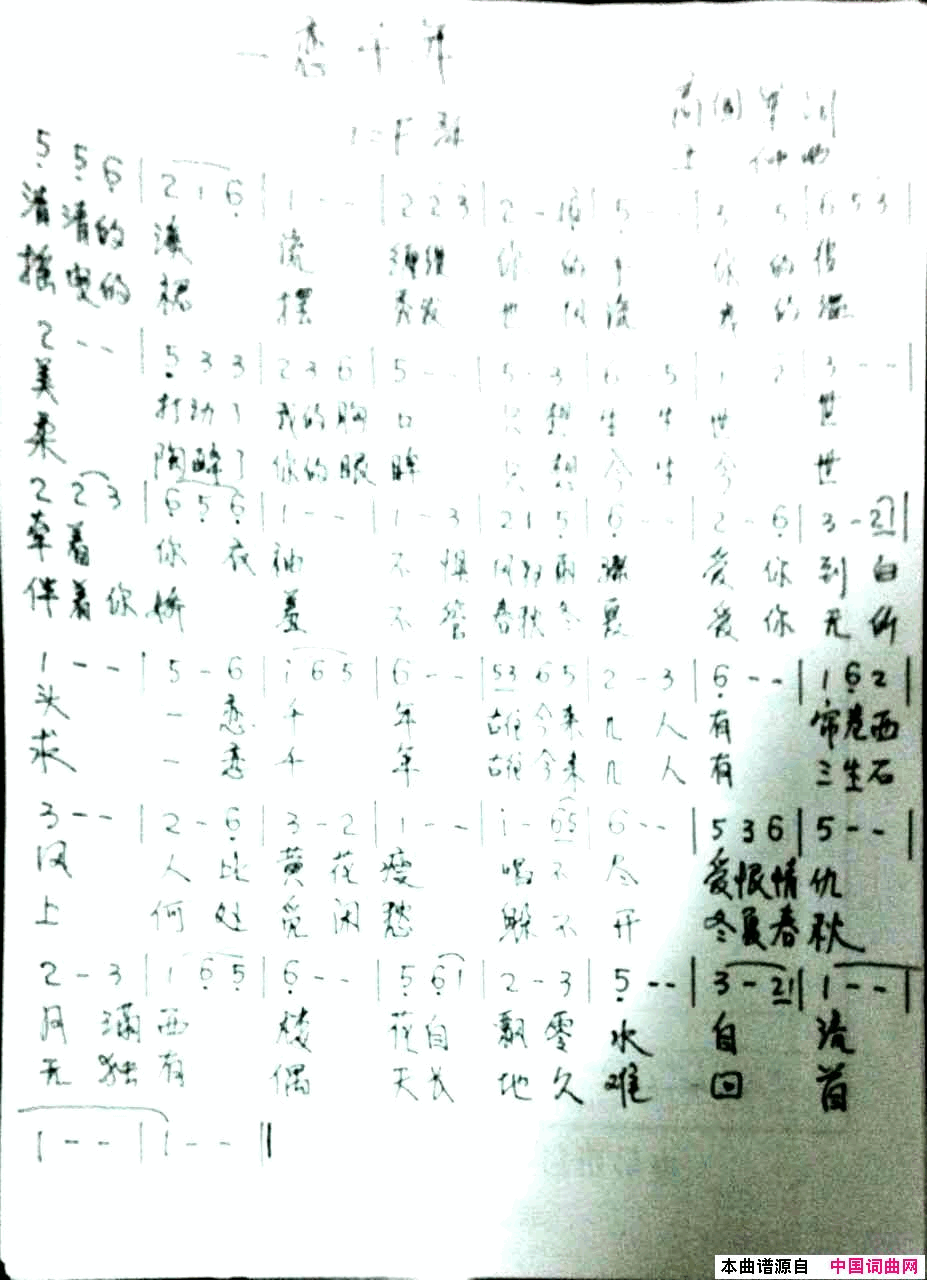 一恋千年
1=F 3/4
5 5 6 | 2 1 6 | 1 - - | 2 2 3 | 2 - 16 | 5 - - | 3 5 | 6 5 3 |
清清的 溪 流 缠绕 你 的 手 你 的
摇曳的 裙 摆 秀发 也 风 流 的 温
2 - - | 5 3 3 | 2 3 6 | 5 - - | 5 - 3 | 6 - 5 | 1 - 2 | 3 - - |
美 打动了 我的胸 口 只 想 生 生 世 世
柔 陶醉了 你的眼 眸 只 想 今 生 今 世
2 2 3 | 6 5 6 | 1 - - | 1 - 3 | 2 1 5 | 6 - - | 2 - 6 | 3 - 21 |
牵着 你 衣 袖 不 惧 风和雨 骤 爱 你 到 白
伴着你 娇 羞 不 管 春秋冬 夏 爱 你 无 所
1 - - | 5 - 6 | i 6 5 | 6 - - | 53 6 5 | 2 - 3 | 6 - - | 1 6 2 |
头 一 恋 千 年 古往今来 几 人 有 帘卷西
求 一 恋 千 年 古往今来 几 人 有 三生石
3 - - | 2 - 6 | 3 - 2 | 1 - - | i - 65 | 6 - - | 5 3 6 | 5 - - |
风 人 比 黄 花 瘦 唱 不 尽 爱恨情 仇
上 何 处 觅 闲 愁 躲 不 开 冬夏春 秋
2 - 3 | 1 6 5 | 6 - - | 5 6 1 | 2 - 3 | 5 - - | 3 - 21 | 1 - - |
月 满 西 楼 花自 飘 零 水 自 流
无 独 有 偶 天长 地 久 难 回 首
1 - - | 1 - - ||
本曲谱源自 中国词曲网